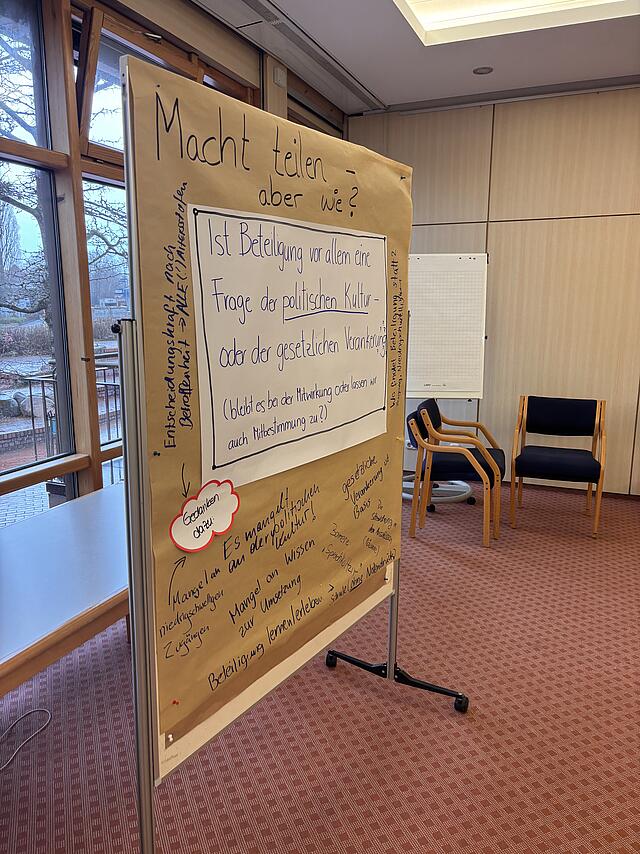 Macht teilen –
aber wie?
Ist Beteiligung vor allem eine
Frage der politischen Kultur –
oder der gesetzlichen Verankerung
(bleibt es bei der Mitwirkung oder lassen wir
auch Mitbestimmung zu?)
Entscheidungskraft nach
Betroffenheit → ALLE
Wo findet Beteiligung statt?
Gedanken
dazu:
Es mangelt
an der politischen
Kultur!
gesetzliche
Verankerung ist
Basis
Mangel an
niedrigschwelligen
Zugängen
Mangel an Wissen
zur Umsetzung
Beteiligung lernen/erleben →